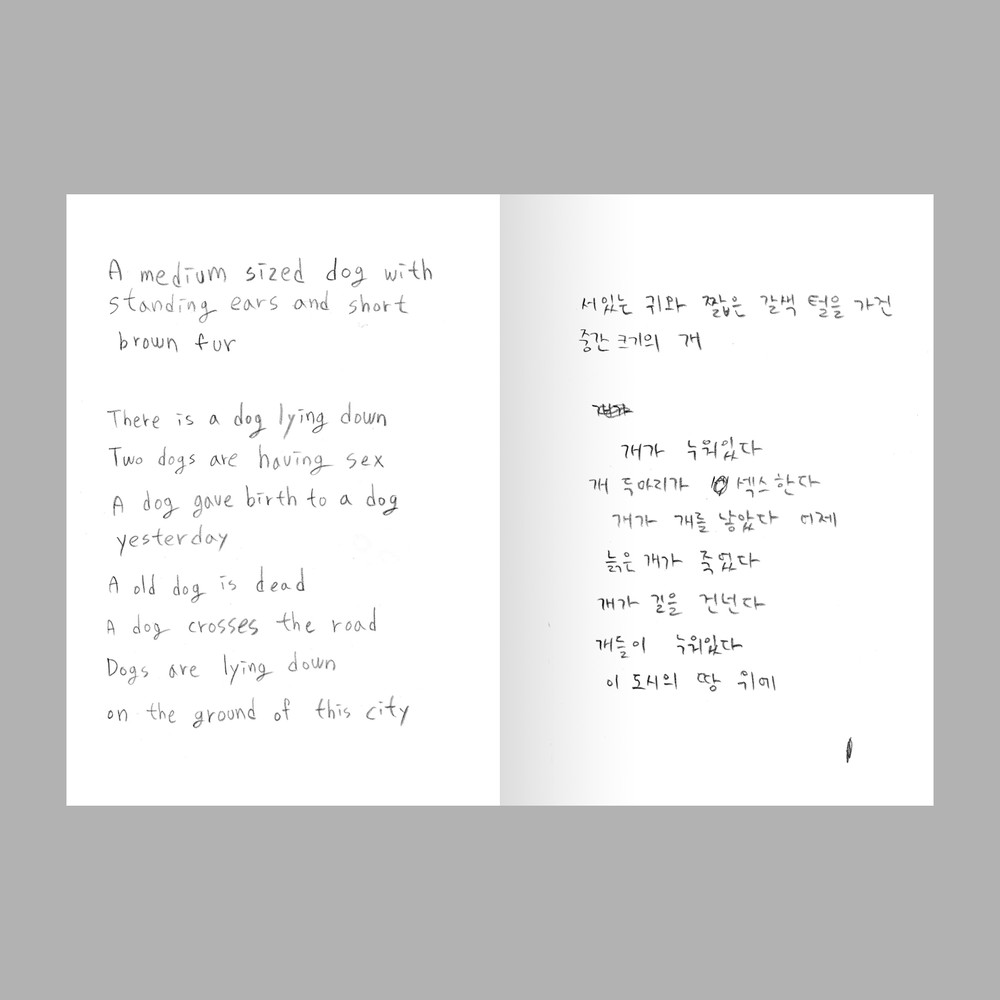 A medium sized dog with
standing ears and short
brown fur
There is a dog lying down
Two dogs are having sex
A dog gave birth to a dog
yesterday
A old dog is dead
A dog crosses the road
Dogs are lying down
on the ground of this city
서있는 귀와 짧은 갈색 털을 가진
중간 크기의 개
개가 누워있다
개 두마리가 섹스한다
개가 개를 낳았다 어제
늙은 개가 죽었다
개가 길을 건넌다
개들이 누워있다
이 도시의 땅 위에